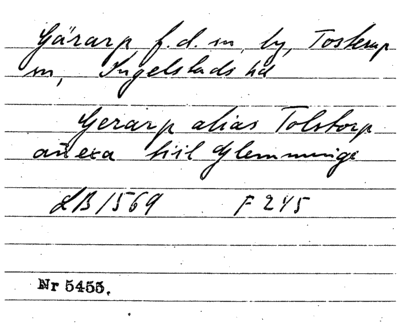 Gärarp f.d. sn, by, Tosterup
sn, Ingelstads hd
Gerarp alias Tolstorp
anexa till Glemminge
LB 1569 F 245
Nr 5455.